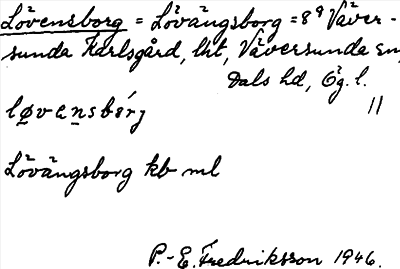 Lövensborg = Lövängsborg = 8⁹ Väver-
sunda Karlsgård, lht, Väversunda sn,
Dals hd, Ög. l.
løvensbórj //
Lövängsborg kb ml
P.-E. Fredriksson 1946.